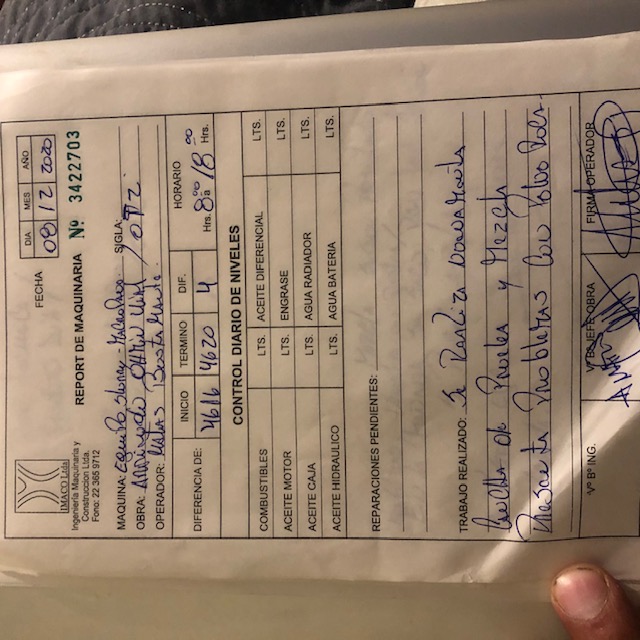 FECHA
DIA MES AÑO
09 12 2020
IMACO Ltda.
Ingeniería Maquinaria y
Construccion Ltda.
Fono: 22 365 9712
REPORT DE MAQUINARIA Nº 3422703
MAQUINA: Equipo Slurry - MacroPavo SIGLA:
OBRA:
OPERADOR: Matias Bustamante.
INICIO TERMINO DIF. HORARIO
DIFERENCIA DE: 4616 4620 4 Hrs. 8:00 a 18:00 Hrs.
CONTROL DIARIO DE NIVELES
COMBUSTIBLES LTS. ACEITE DIFERENCIAL LTS.
ACEITE MOTOR LTS. ENGRASE LTS.
ACEITE CAJA LTS. AGUA RADIADOR LTS.
ACEITE HIDRAULICO LTS. AGUA BATERIA LTS.
REPARACIONES PENDIENTES:
TRABAJO REALIZADO: Se Realiza nuevamente
Cancha de Prueba y Mezcla
Presenta Problemas Con Polvo Roca.
Vº Bº ING. Vº Bº JEFE OBRA FIRMA OPERADOR